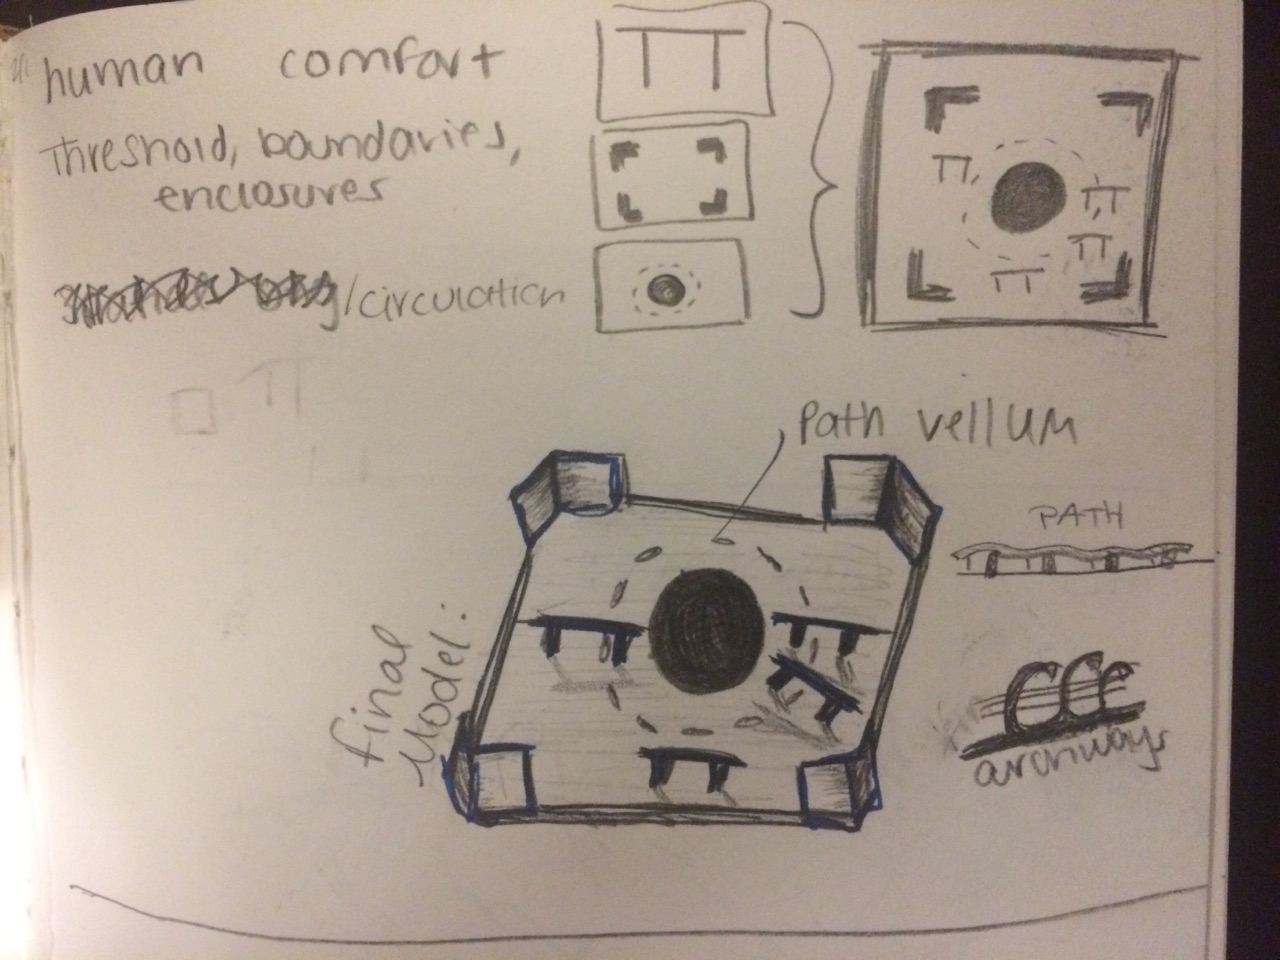 human comfort
Threshold, boundaries,
enclosures
/circulation
Path vellum
PATH
final
Model:
archways